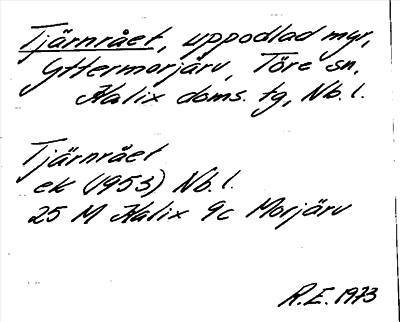 Tjärnrået, uppodlad myr,
Yttermorjärv, Töre sn,
Kalix doms. tg, Nb. l.
Tjärnrået
ek (1953) Nb. l.
25 M Kalix 9c Morjärv
R.E. 1973